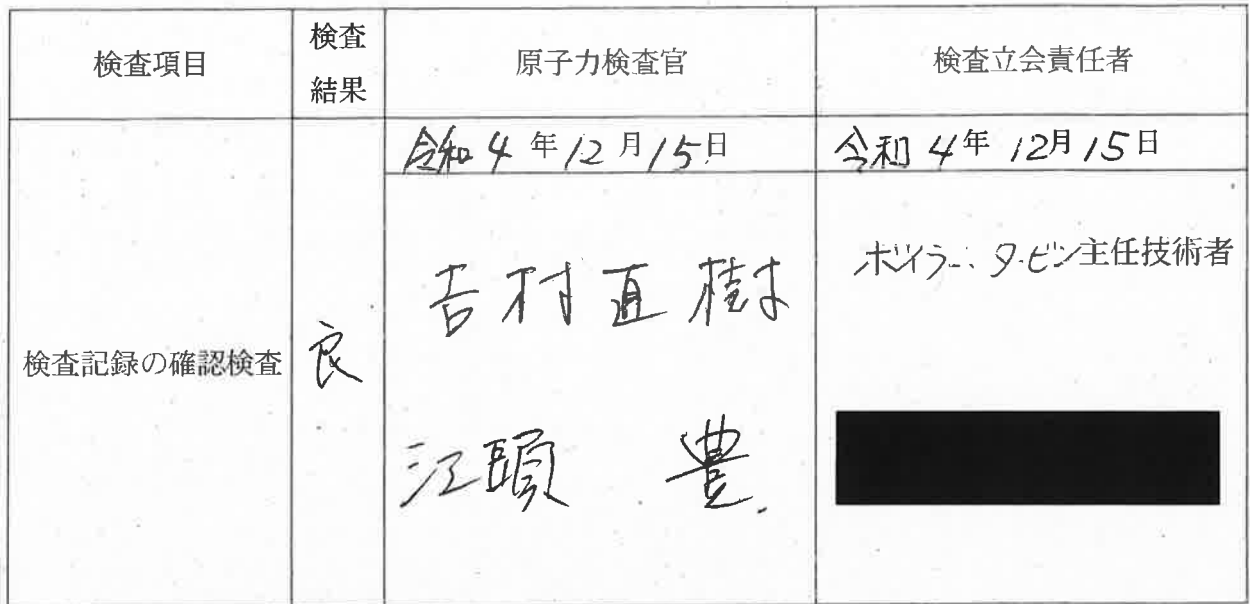 検査項目
検査
結果
原子力検査官
検査立会責任者
検査記録の確認検査
良
令和4年12月15日
吉村直樹
江頭 豊
令和4年12月15日
ボイラー・タービン主任技術者